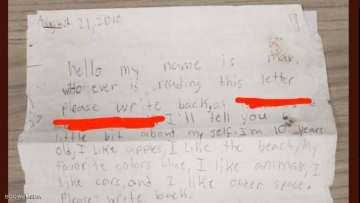 August 21, 2010
hello my name is max,
who ever is reading this letter
please write back, at
I'll tell you
little bit about my self. I'm 10 years
old, I like apples, I like the beach, My
favorite colors blue, I like animals, I
like cars, and I like outer space.
Please write back.
SOCIAL MEDIA